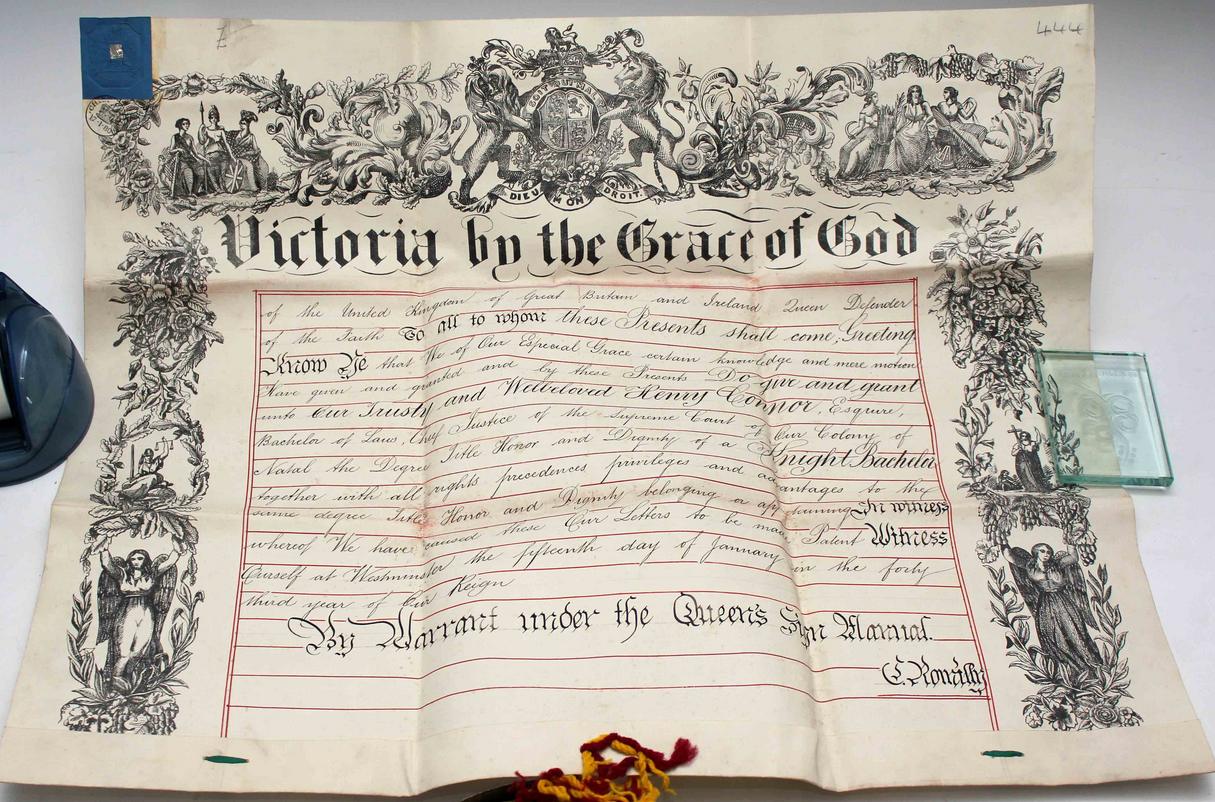 444
DIEU ET MON DROIT
Victoria by the Grace of God
of the United Kingdom of Great Britain and Ireland Queen Defender
of the Faith To all to whom these Presents shall come, Greeting
Know Ye that We of Our Especial Grace certain knowledge and mere motion
Have given and granted and by these Presents Do give and grant
unto Our Trusty and Welbeloved Henry Connor, Esquire,
Bachelor of Laws, Chief Justice of the Supreme Court of Our Colony of
Natal the Degree Title Honor and Dignity of a Knight Bachelor
together with all rights precedences privileges and advantages to the
same degree Title Honor and Dignity belonging or appertaining In witness
whereof We have caused these Our Letters to be made Patent Witness
Ourself at Westminster the fifteenth day of January in the forty
third year of Our Reign
By Warrant under the Queen's Sign Manual.
C. Romilly